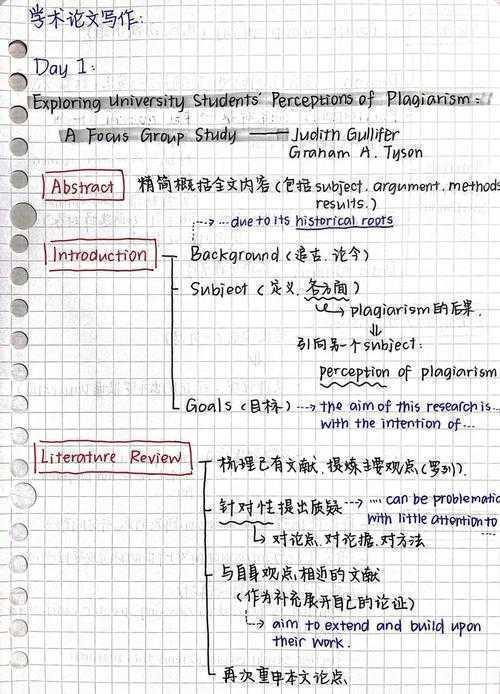 学术论文写作:
Day 1:
Exploring University Students' Perceptions of Plagiarism:
A Focus Group Study —— Judith Gullifer
Graham A. Tyson
Abstract 精简概括全文内容(包括subject. argument. methods
results.)
...due to its historical roots
Introduction Background (追古.论今)
Subject (定义.各方面)
plagiarism的后果.
引向另一个subject:
perception of plagiarism
Goals (目标) ---> the aim of this research is...
with the intention of...
Literature Review 梳理已有文献.提炼主要观点(罗列).
针对性提出质疑 ---> ... can be problematic
with little attention to
对论点.对论据.对方法
与自身观点相近的文献
(作为补充展开自己的论证)
aim to extend and build upon
their work.
再次重申本文论点.